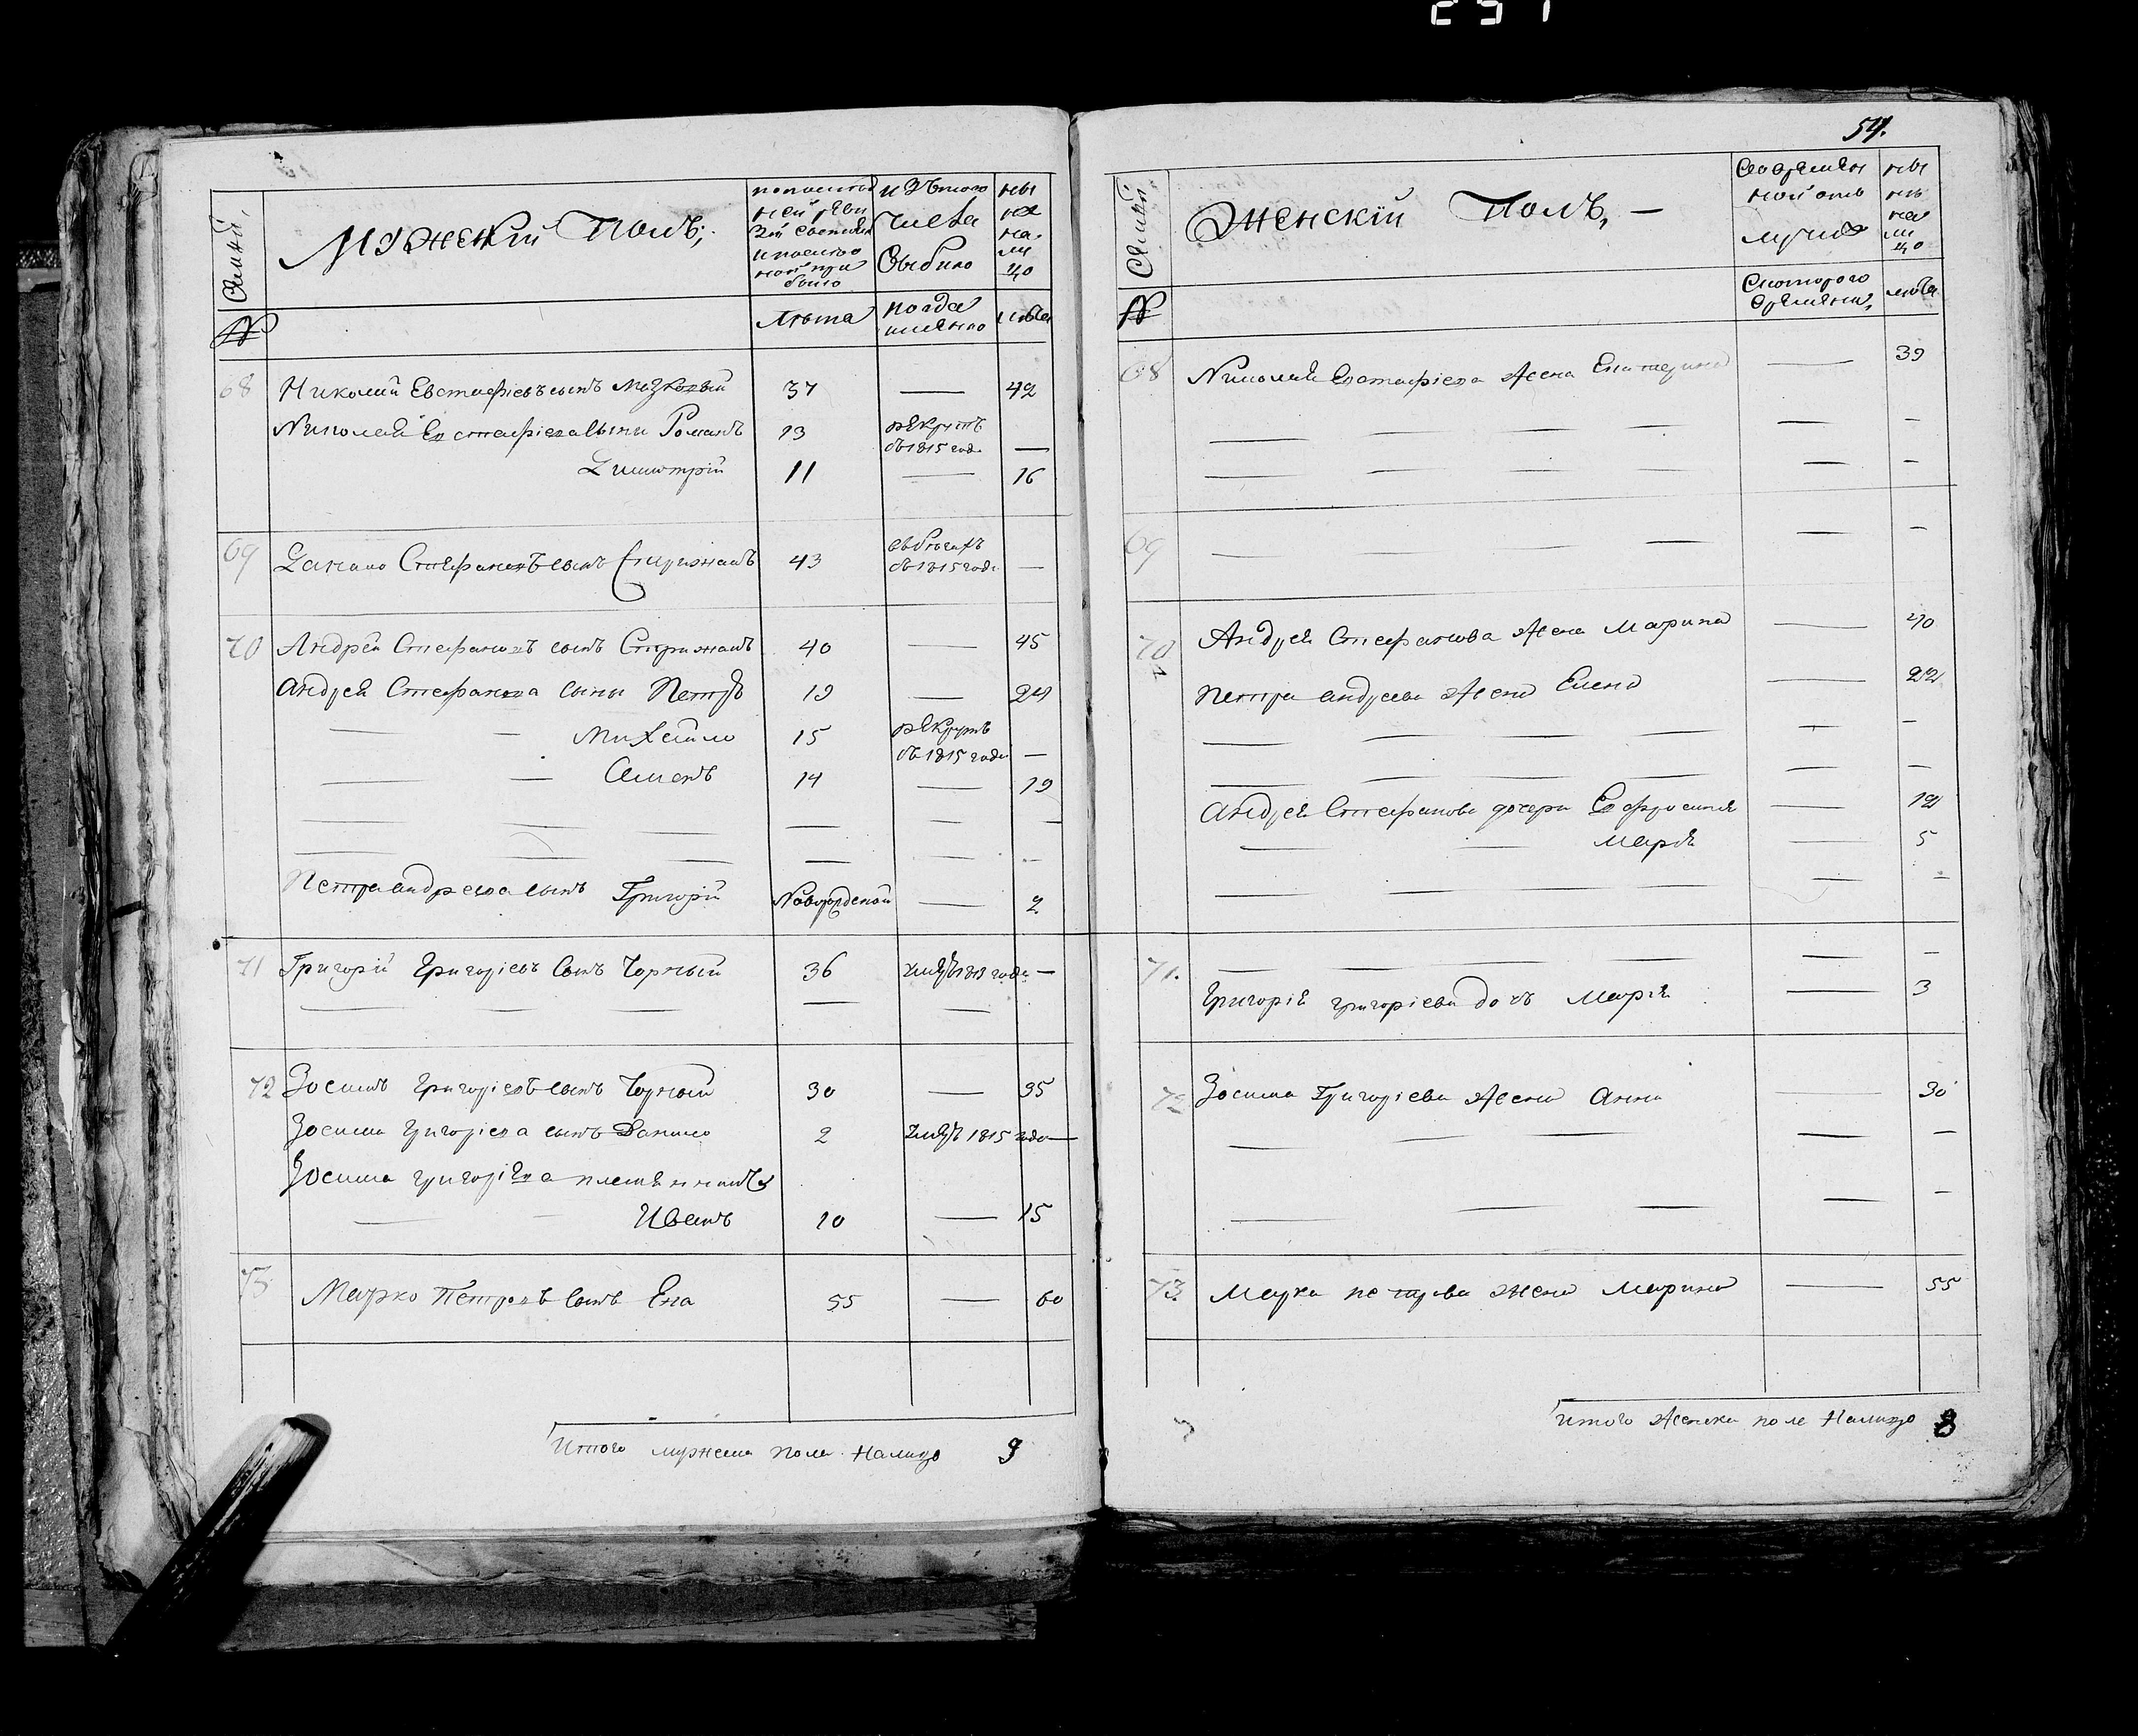 251
Семьи,
№
Мужескїй Полъ;
Лѣта
изъ того
числа
выбыло
когда
именно
лѣта
68 Николай Евстафіевъ сынъ Мазковый 37 — 42
Николая Евстафіева сыны Романъ 13 рекрутъ
въ 1815 годе —
Димитрій 11 — 16
69 Данило Стефановъ сынъ Стрижакъ 43 въ бегахъ
съ 1815 года —
70 Андрей Стефановъ сынъ Стрижакъ 40 — 45
Андрея Стефанова сыны Петръ 19 — 24
— — Михайло 15 рекрутъ
въ 1815 годе —
— — Семенъ 14 — 19
Петра андреева сынъ Григорій Новорожденой — 2
71 Григорій Григоріевъ сынъ Чорный 36 умеръ 1813 года —
72 Зосимъ Григоріевъ сынъ Чорный 30 — 35
Зосима Григоріева сынъ Данило 2 умеръ 1815 года —
Зосима григоріева племянникъ
— — Иванъ 10 — 15
73 Марко Петровъ сынъ Ена 55 — 60
Итого мужеска пола Налицо 9
54.
Семьи
№
Женскїй Полъ, —
Во времен
ной отлучке
ны
не
на
ли
цо
Съкоторого
времени,
лѣта
68 Николая Евстафіева жена Екатерина — 39
69
70 Андрея Стефанова жена Марина — 40
Петра андреева жена Елена — 22
Андрея Стефанова дочери Евфросинія — 12
— — Марія — 5
71. Григорія григоріева дочь Марія — 3
72 Зосима Григоріева жена Анна — 30
73. Марка петрова жена Марина — 55
Итого женска поле Налицо 8